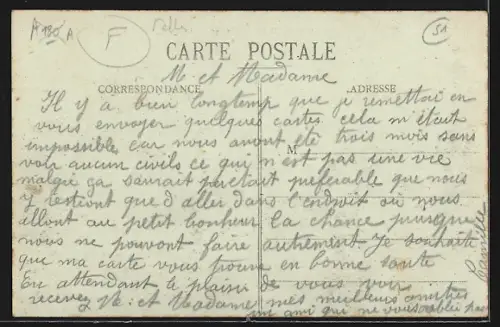 A 180 A
F
51
CARTE POSTALE
CORRESPONDANCE
ADRESSE
M
M et Madame
Il y a bien longtemp que je remettai en
vous envoyer quelques cartes cela m'était
impossible car nous avont été trois mois sans
voir aucun civils ce qui n'est pas une vie
malgré ça saurait préférable que nous
y restiont que d'aller dans l'endroit où nous
allont au petit bonheur la chance puisque
nous ne pouvont faire autrement Je souhaite
que ma carte vous trouve en bonne santé
En attendant le plaisir de vous voir
recevez M. et Madame mes meilleurs amitiés
un ami qui ne vous oublie pas